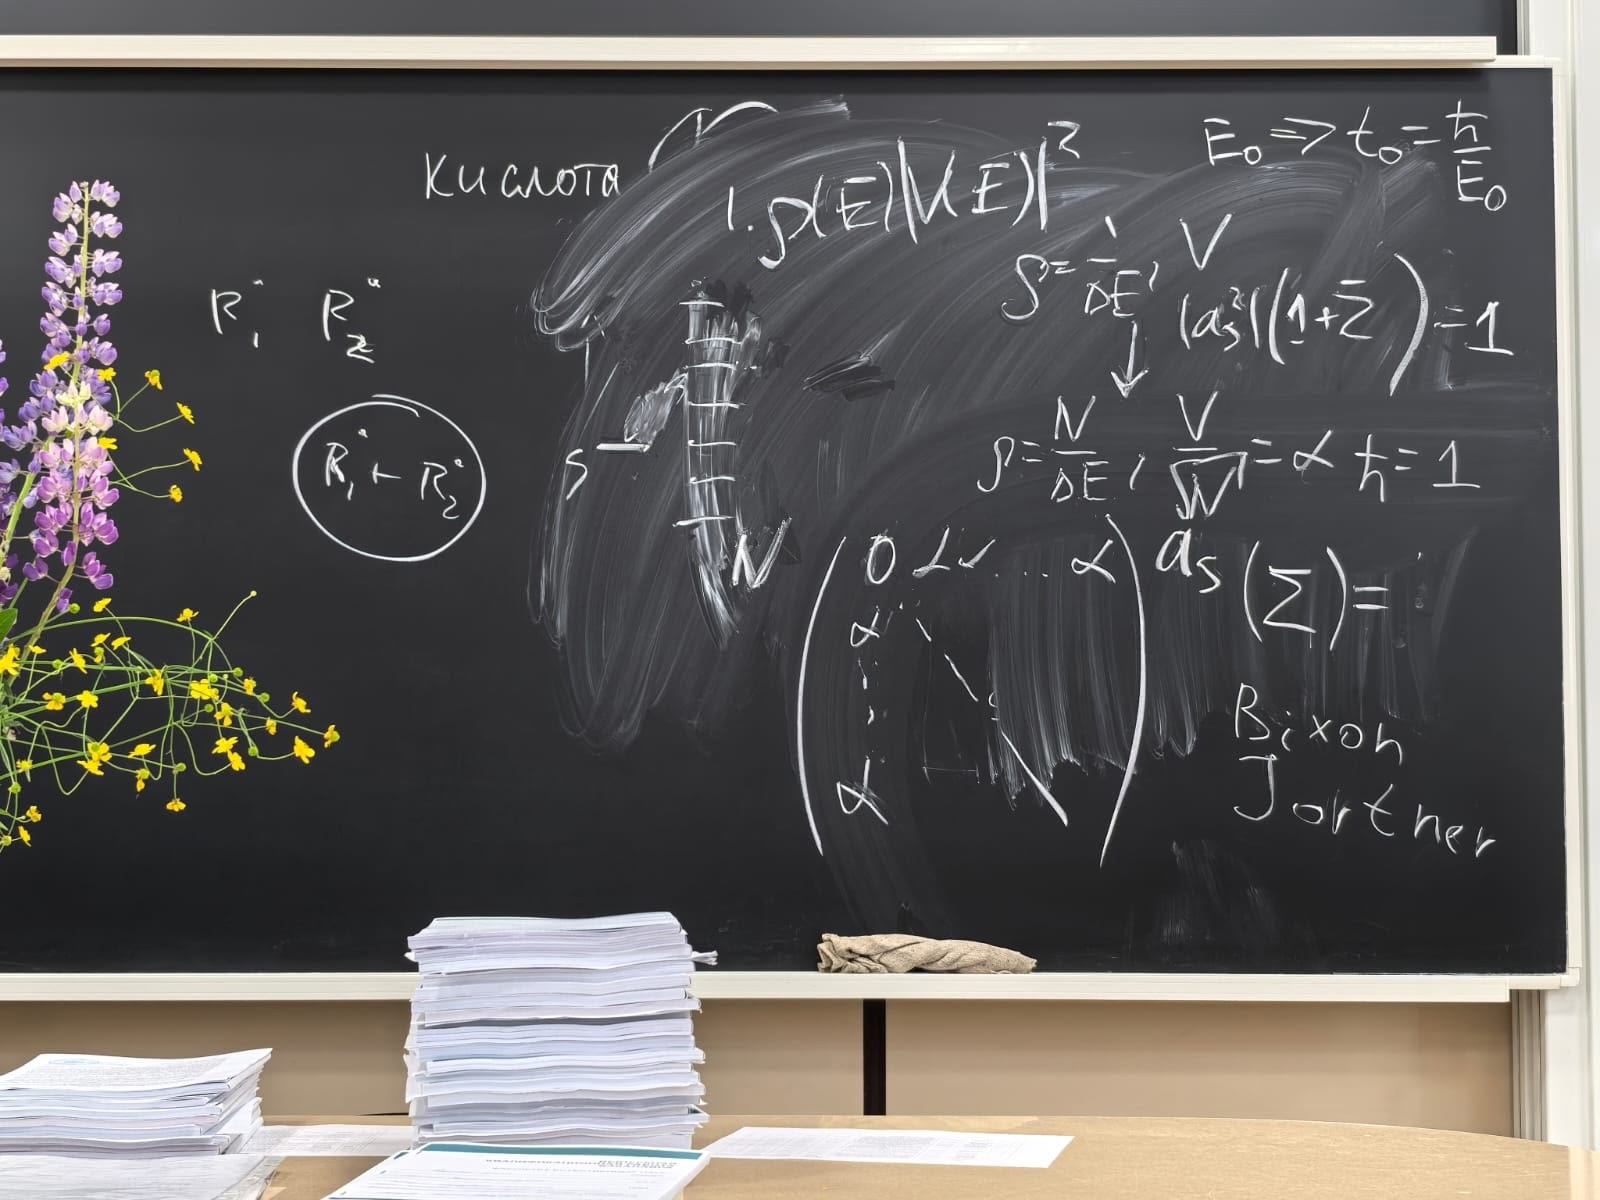 Кислота
1. ρ(E)|V(E)|²
E₀ => t₀ = ħ/E₀
ρ = 1/ΔE, V
|aₛ²|(1+Σ) = 1
R₁˙ R₂˙
R₁˙ + R₂˙
S
N
ρ = N/ΔE, V/√N = α ħ = 1
0 α α ... α
α
α
aₛ(Σ) =
Bixon
Jortner